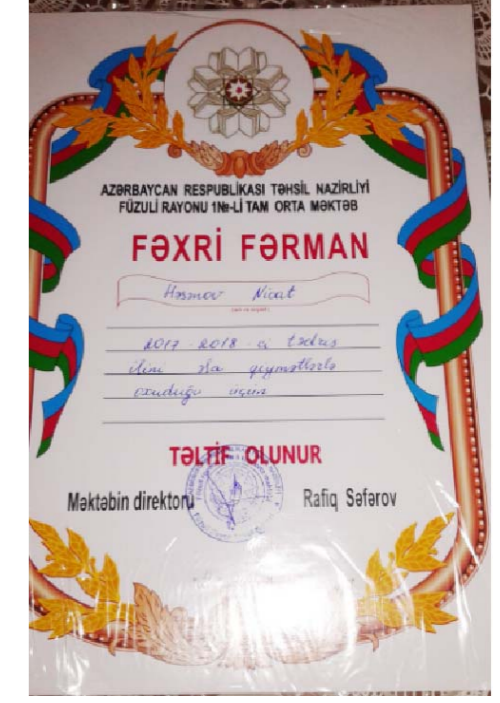 AZƏRBAYCAN RESPUBLİKASI TƏHSİL NAZİRLİYİ
FÜZULİ RAYONU 1№-Lİ TAM ORTA MƏKTƏB
FƏXRİ FƏRMAN
Həsmov Nicat
2017-2018-ci tədris
ilini əla qiymətlərlə
oxuduğu üçün
TƏLTİF OLUNUR
Məktəbin direktoru Rafiq Səfərov